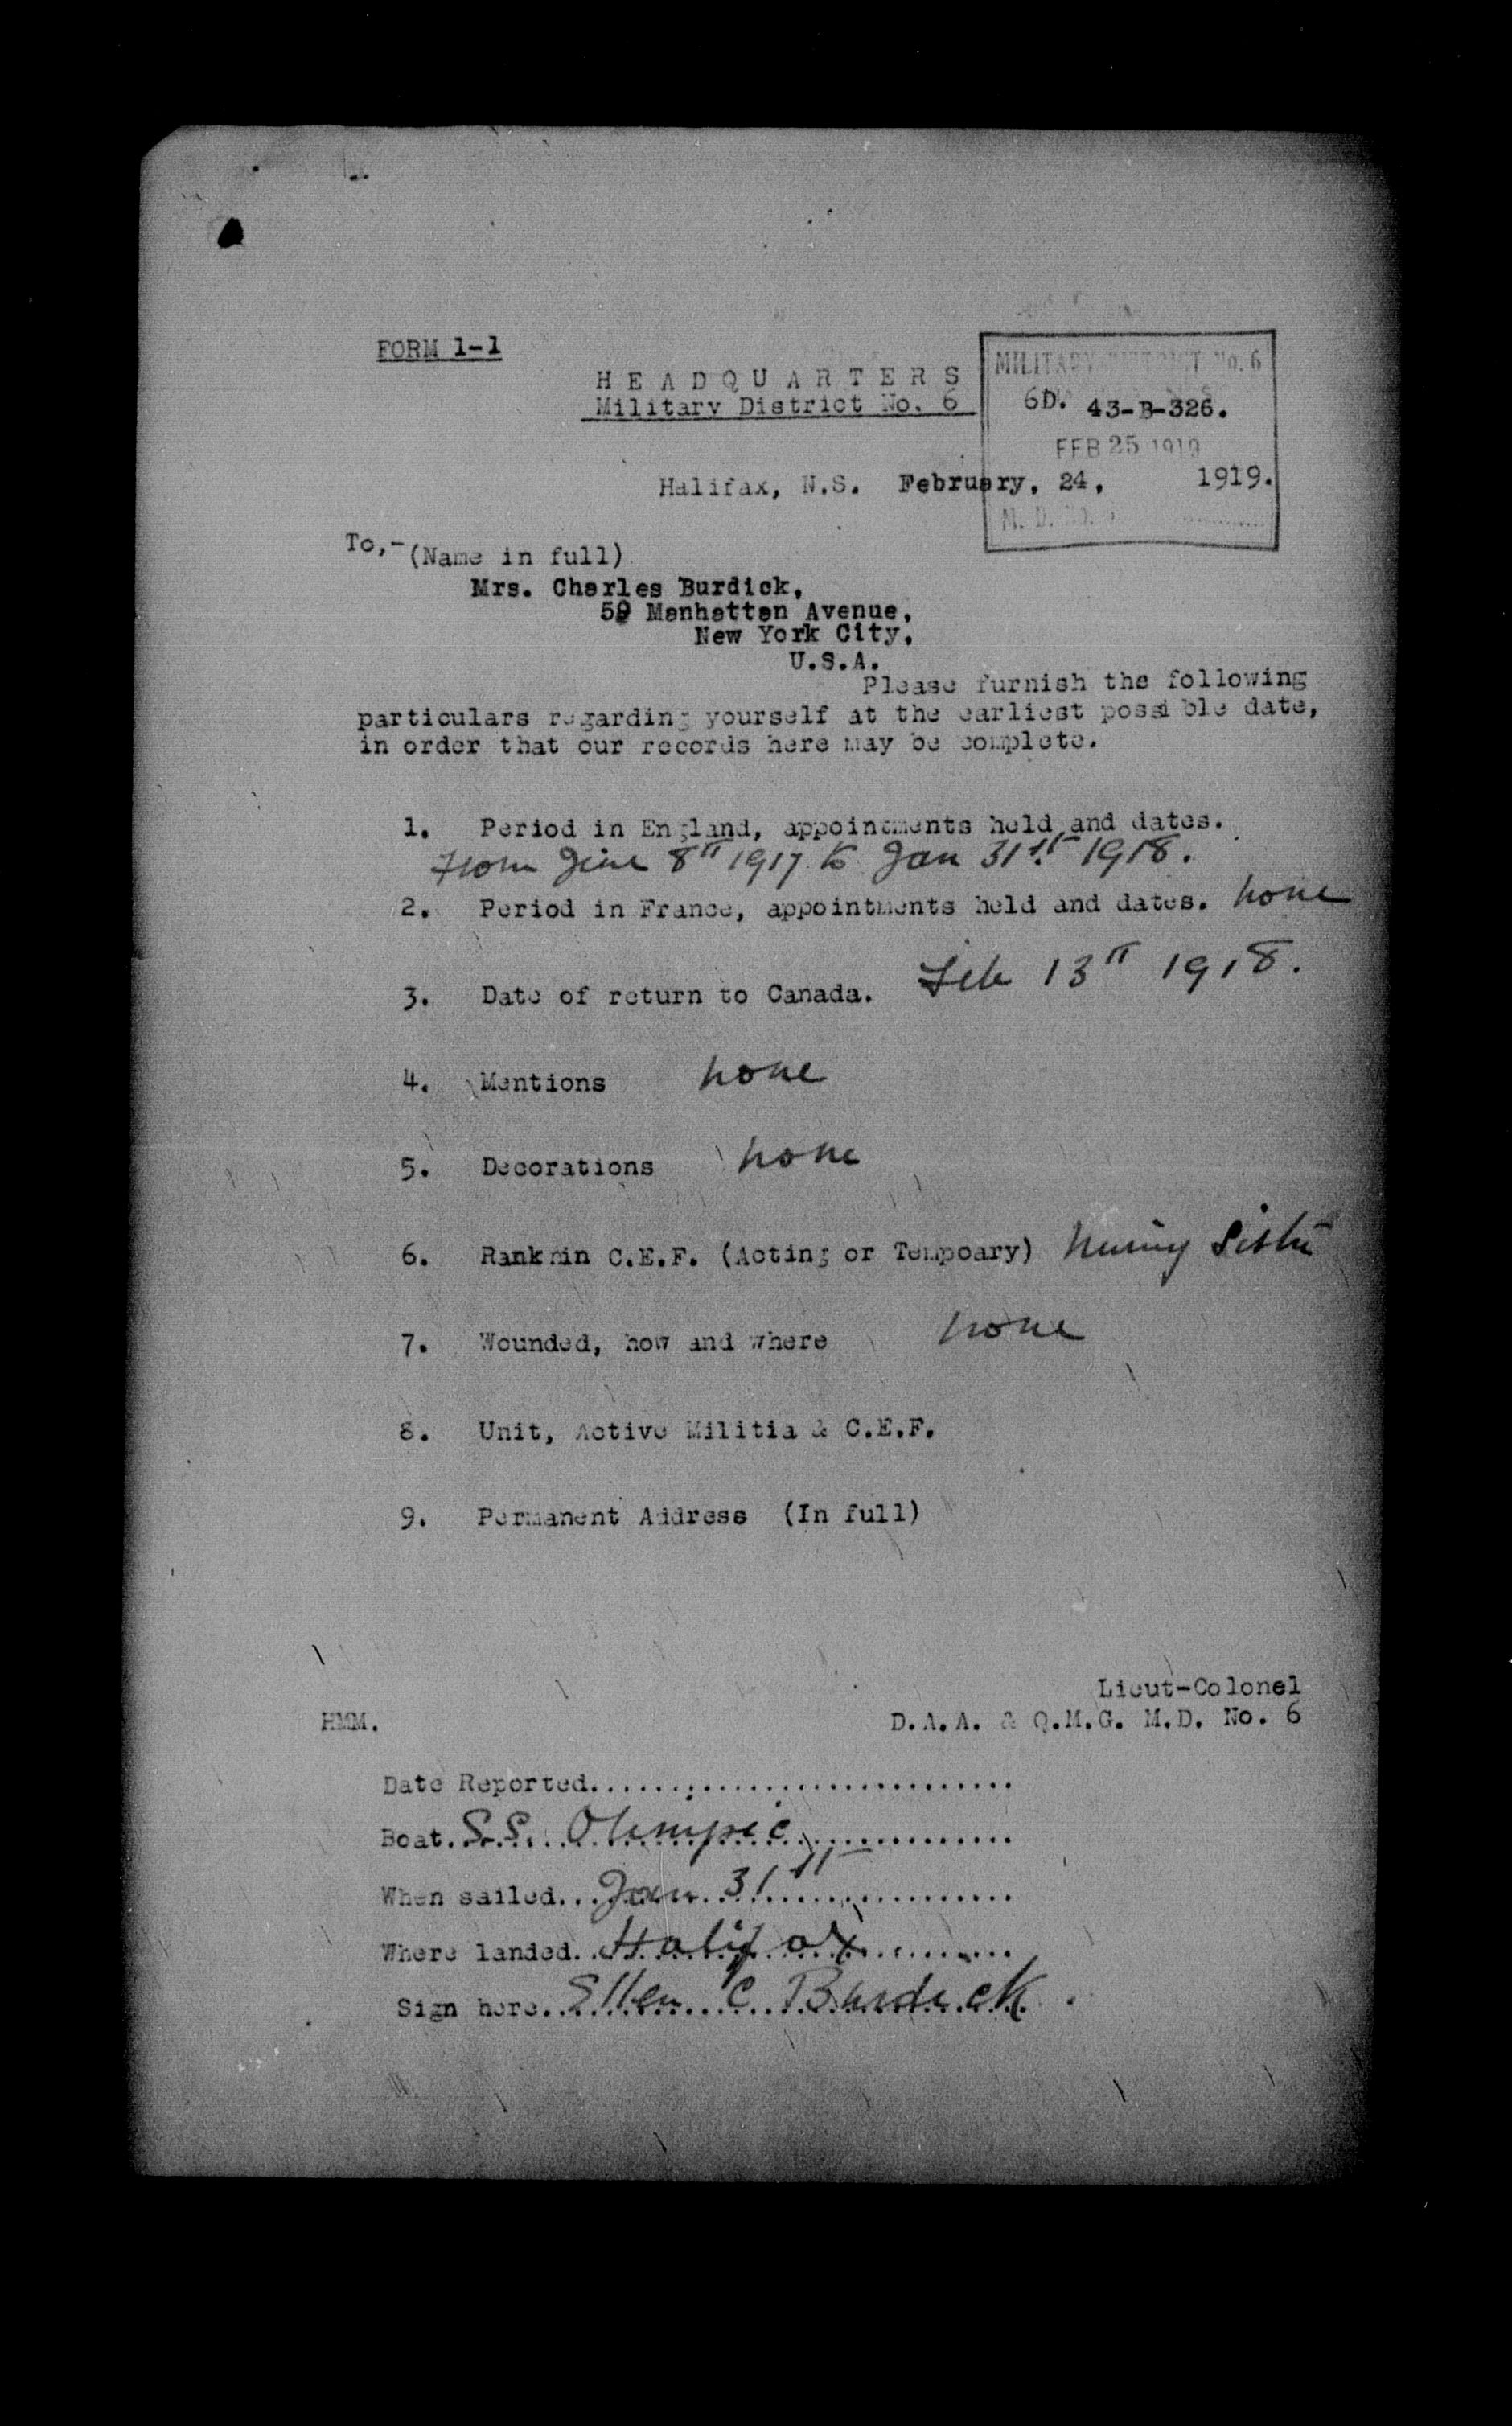 FORM 1-1
HEADQUARTERS
Military District No. 6
MILITARY DISTRICT No. 6
6D. 43-B-326.
FEB 25 1919
Halifax, N.S. February, 24, 1919.
M. D. No. 6
To,- (Name in full)
Mrs. Charles Burdick,
59 Manhattan Avenue,
New York City,
U.S.A.
Please furnish the following
particulars regarding yourself at the earliest possi ble date,
in order that our records here may be complete.
1. Period in England, appointments held and dates.
From June 8th 1917 to Jan 31st 1918.
2. Period in France, appointments held and dates. none
3. Date of return to Canada. Feb 13th 1918.
4. Mentions none
5. Decorations none
6. Rank in C.E.F. (Acting or Tempoary) Nursing Sister
7. Wounded, how and where none
8. Unit, Active Militia & C.E.F.
9. Permanent Address (In full)
Lieut-Colonel
HMM. D.A.A. & Q.M.G. M.D. No. 6
Date Reported..............................
Boat. S.S. Olimpic
When sailed... Jan. 31st
Where landed.. Halifax
Sign here.. Ellen C. Burdick.